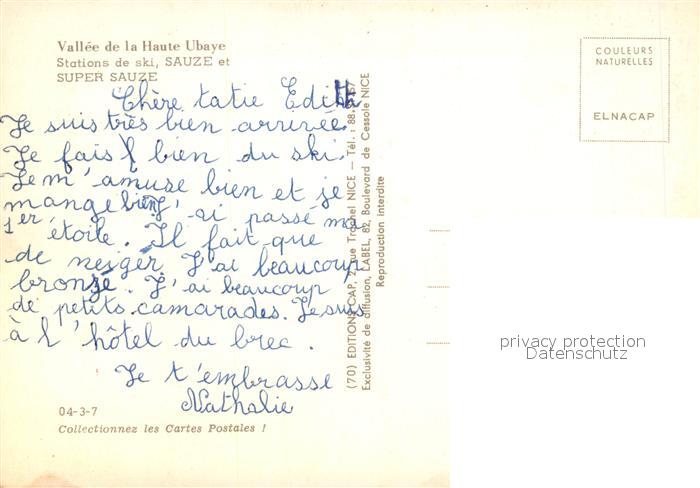 Vallée de la Haute Ubaye
Stations de ski, SAUZE et
SUPER SAUZE
Chère tatie Edith
Je suis très bien arrivée.
Je fais bien du ski.
Je m'amuse bien et je
mange bien J'ai passé ma
1er étoile. Il fait que
de neiger J'ai beaucoup
bronzé. J'ai beaucoup
de petits camarades. Je suis
à l'hôtel du brec.
Je t'embrasse
Nathalie
04-3-7
Collectionnez les Cartes Postales !
(70) EDITIONS CAP, rue Trachel NICE — Tél. : 88.
Exclusivité de diffusion, LABEL, 82, Boulevard de Cessole NICE
Reproduction interdite
COULEURS
NATURELLES
ELNACAP
privacy protection
Datenschutz